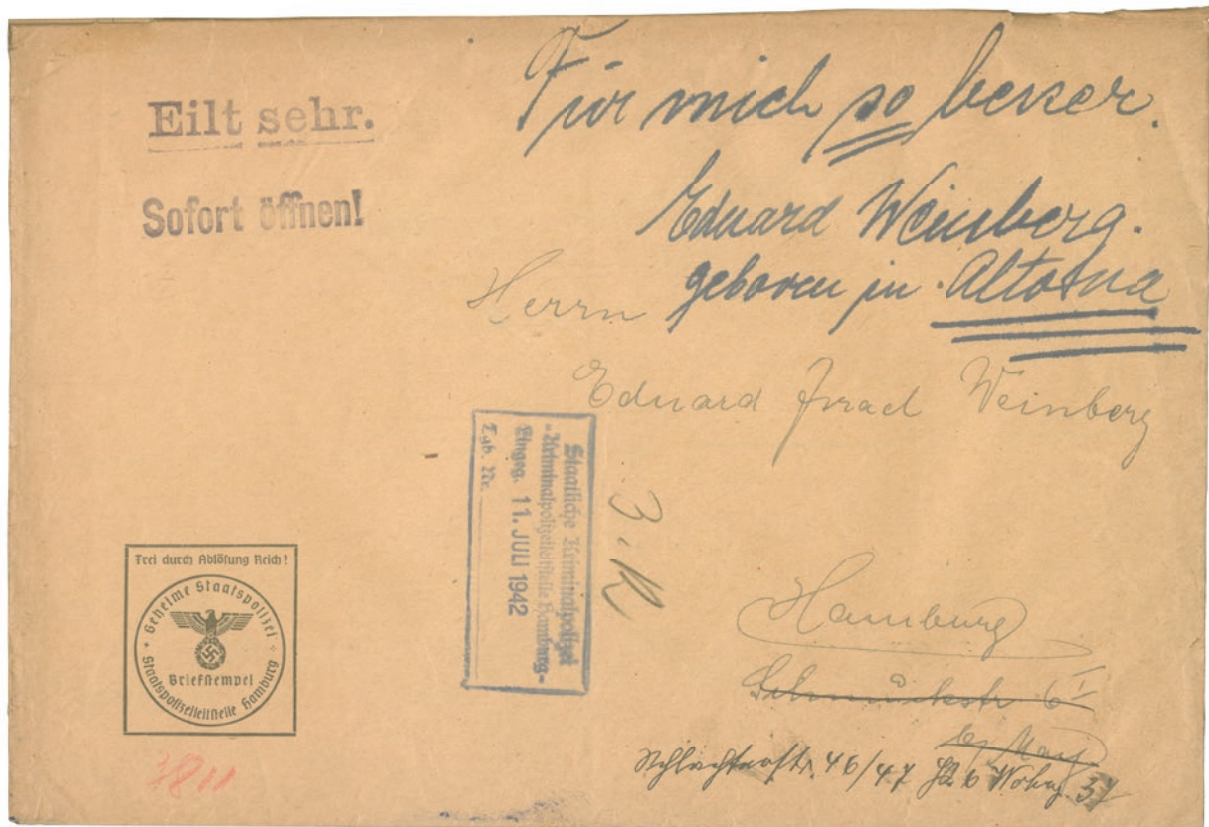 Eilt sehr.
Sofort öffnen!
Für mich so besser.
Eduard Weinberg.
geboren in Altona
Herrn
Eduard Israel Weinberg
Staatliche Kriminalpolizei
-Kriminalpolizeileitstelle Hamburg-
Eingeg. 11. JULI 1942
Tgb. Nr.
3.K
Hamburg
Schmuckstr 6 I
bei May
Schlachterstr. 46/47 Hs. 6 Wohng. 37
Frei durch Ablösung Reich!
Geheime Staatspolizei
Briefstempel
Staatspolizeileitstelle Hamburg